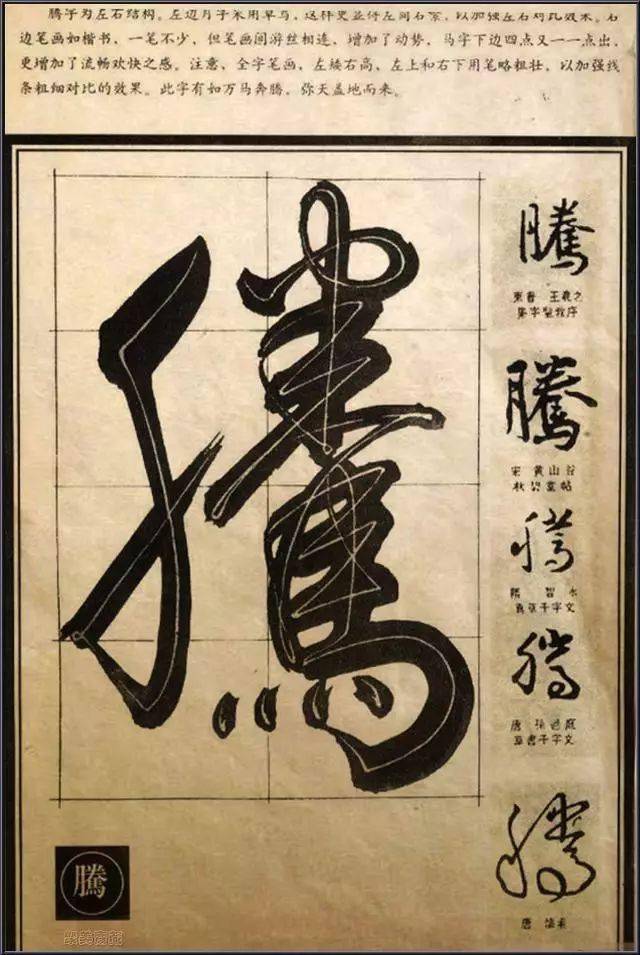 腾字为左右结构。左边月字采用草写，这样更显得左简右繁，以加强左右对比效果。右
边笔画如楷书、一笔不少，但笔画间游丝相连，增加了动势，马字下边四点又一一点出，
更增加了流畅欢快之感。注意，全字笔画，左矮右高、左上和右下用笔略粗壮，以加强线
条粗细对比的效果。此字有如万马奔腾，弥天盖地而来。
騰
騰
東晋 王羲之
集字聖教序
騰
宋 黄山谷
騰
隋 智永
真草千字文
騰
唐 孫過庭
草書千字文
騰
唐 懷素
騰